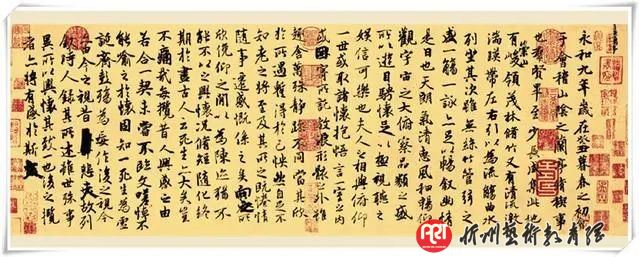 永和九年歲在癸丑暮春之初會
于會稽山陰之蘭亭脩稧事
也羣賢畢至少長咸集此地
有崇山峻領茂林脩竹又有清流激
湍暎帶左右引以為流觴曲水
列坐其次雖無絲竹管弦之
盛一觴一詠亦足以暢敘幽情
是日也天朗氣清惠風和暢仰
觀宇宙之大俯察品類之盛
所以遊目騁懷足以極視聽之
娛信可樂也夫人之相與俯仰
一世或取諸懷抱悟言一室之內
或因寄所託放浪形骸之外雖
趣舍萬殊靜躁不同當其欣
於所遇蹔得於己怏然自足不
知老之將至及其所之既惓情
隨事遷感慨係之矣向之所
欣俛仰之間以為陳跡猶不
能不以之興懷況脩短隨化終
期於盡古人云死生亦大矣豈
不痛哉每攬昔人興感之由
若合一契未嘗不臨文嗟悼不
能喻之於懷固知一死生為虛
誕齊彭殤為妄作後之視今
亦由今之視昔悲夫故列
敘時人錄其所述雖世殊事
異所以興懷其致一也後之攬
者亦將有感於斯文
忻州藝術教育網